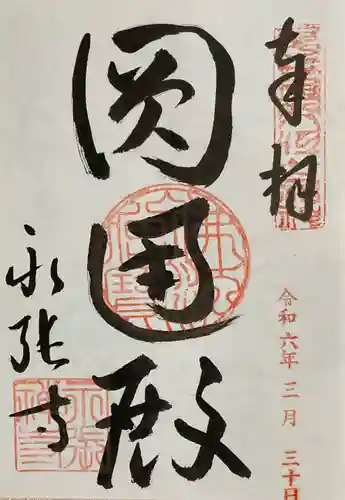 奉拝
令和六年 三月 三十日
圓通殿
永張寺